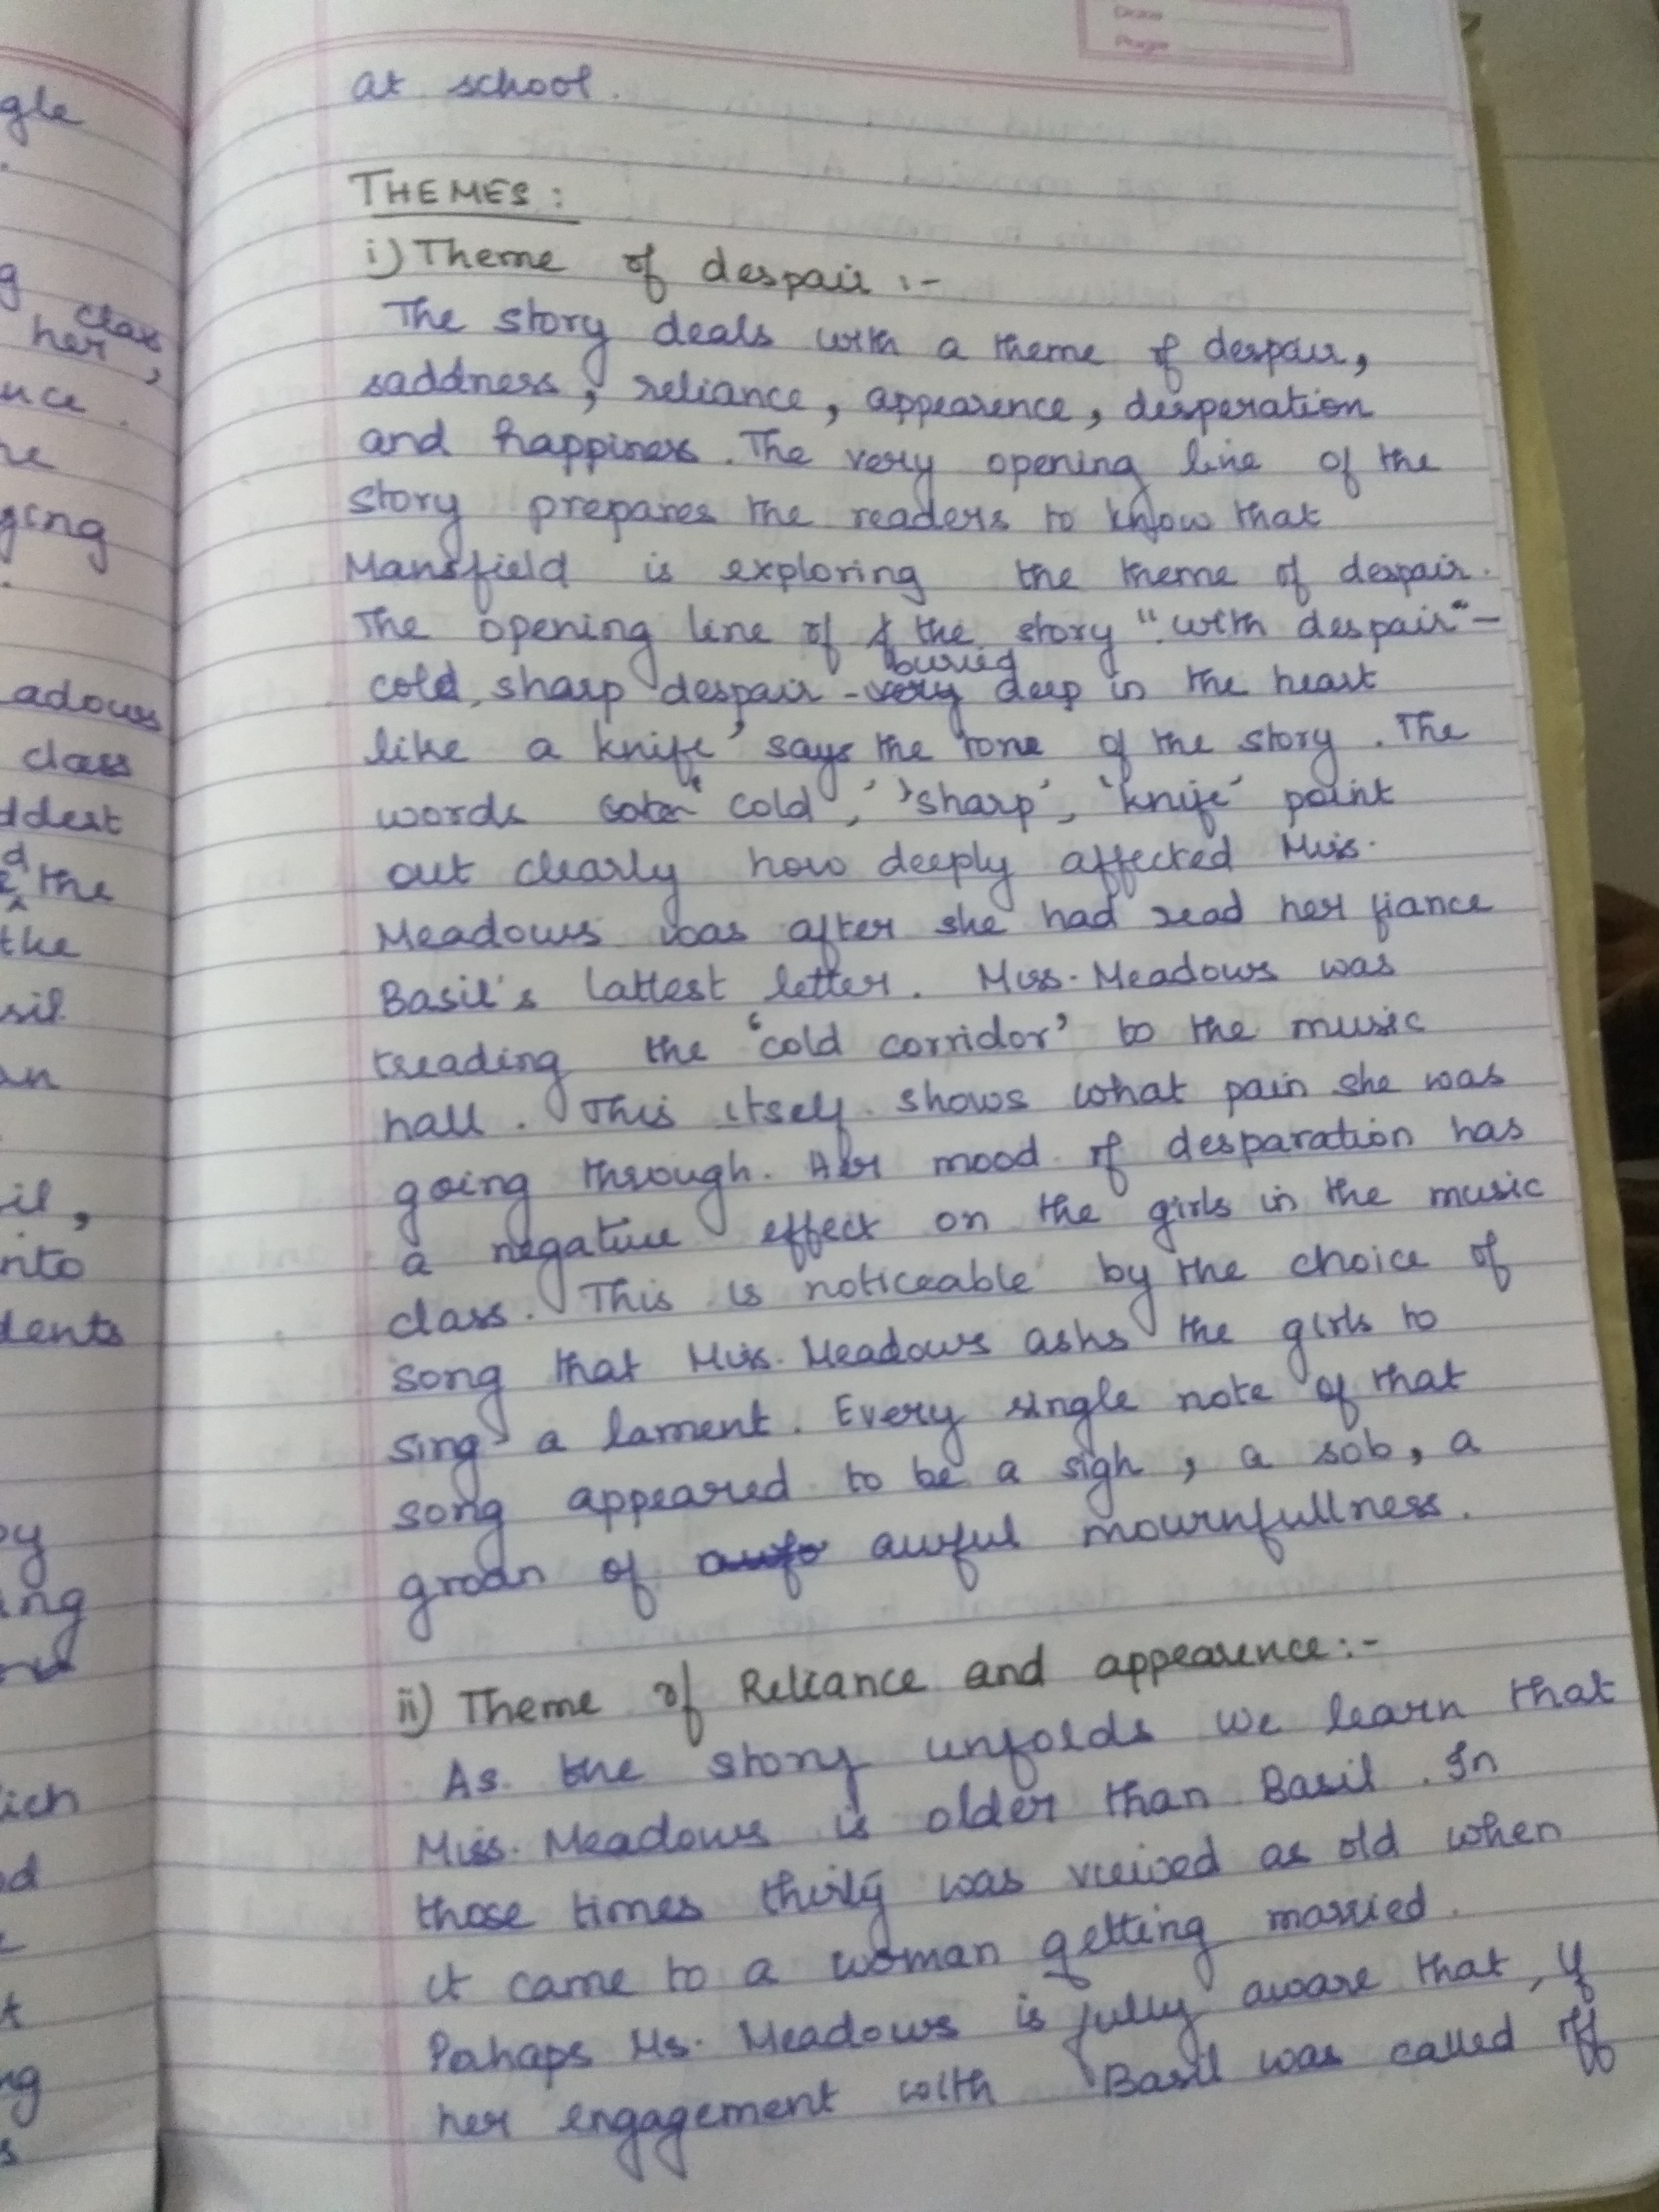 Date
Page
at school.
THEMES:
i) Theme of despair :-
The story deals with a theme of despair,
saddness, reliance, appearence, desperation
and happiness. The very opening line of the
story prepares the readers to know that
Mansfield is exploring the theme of despair.
The opening line of the story "with despair" –
cold, sharp despair - buried deep in the heart
like a knife' says the tone of the story. The
words 'cold', 'sharp', 'knife' point
out clearly how deeply affected Miss.
Meadows was after she had read her fiance
Basil's lattest letter. Miss. Meadows was
treading the 'cold corridor' to the music
hall. This itself shows what pain she was
going through. Her mood of desparation has
a negative effect on the girls in the music
class. This is noticeable by the choice of
song that Miss. Meadows asks the girls to
sing a lament. Every single note of that
song appeared to be a sigh, a sob, a
groan of awful mournfullness.
ii) Theme of Reliance and appearence:-
As the story unfolds we learn that
Miss. Meadows is older than Basil. In
those times thirty was viewed as old when
it came to a woman getting married.
Pahaps Ms. Meadows is fully aware that, if
her engagement with Basil was called off
gle
her, class
uce.
adows
class
ddest
the
the
sil
an
il,
nto
dents
by
ing
ich